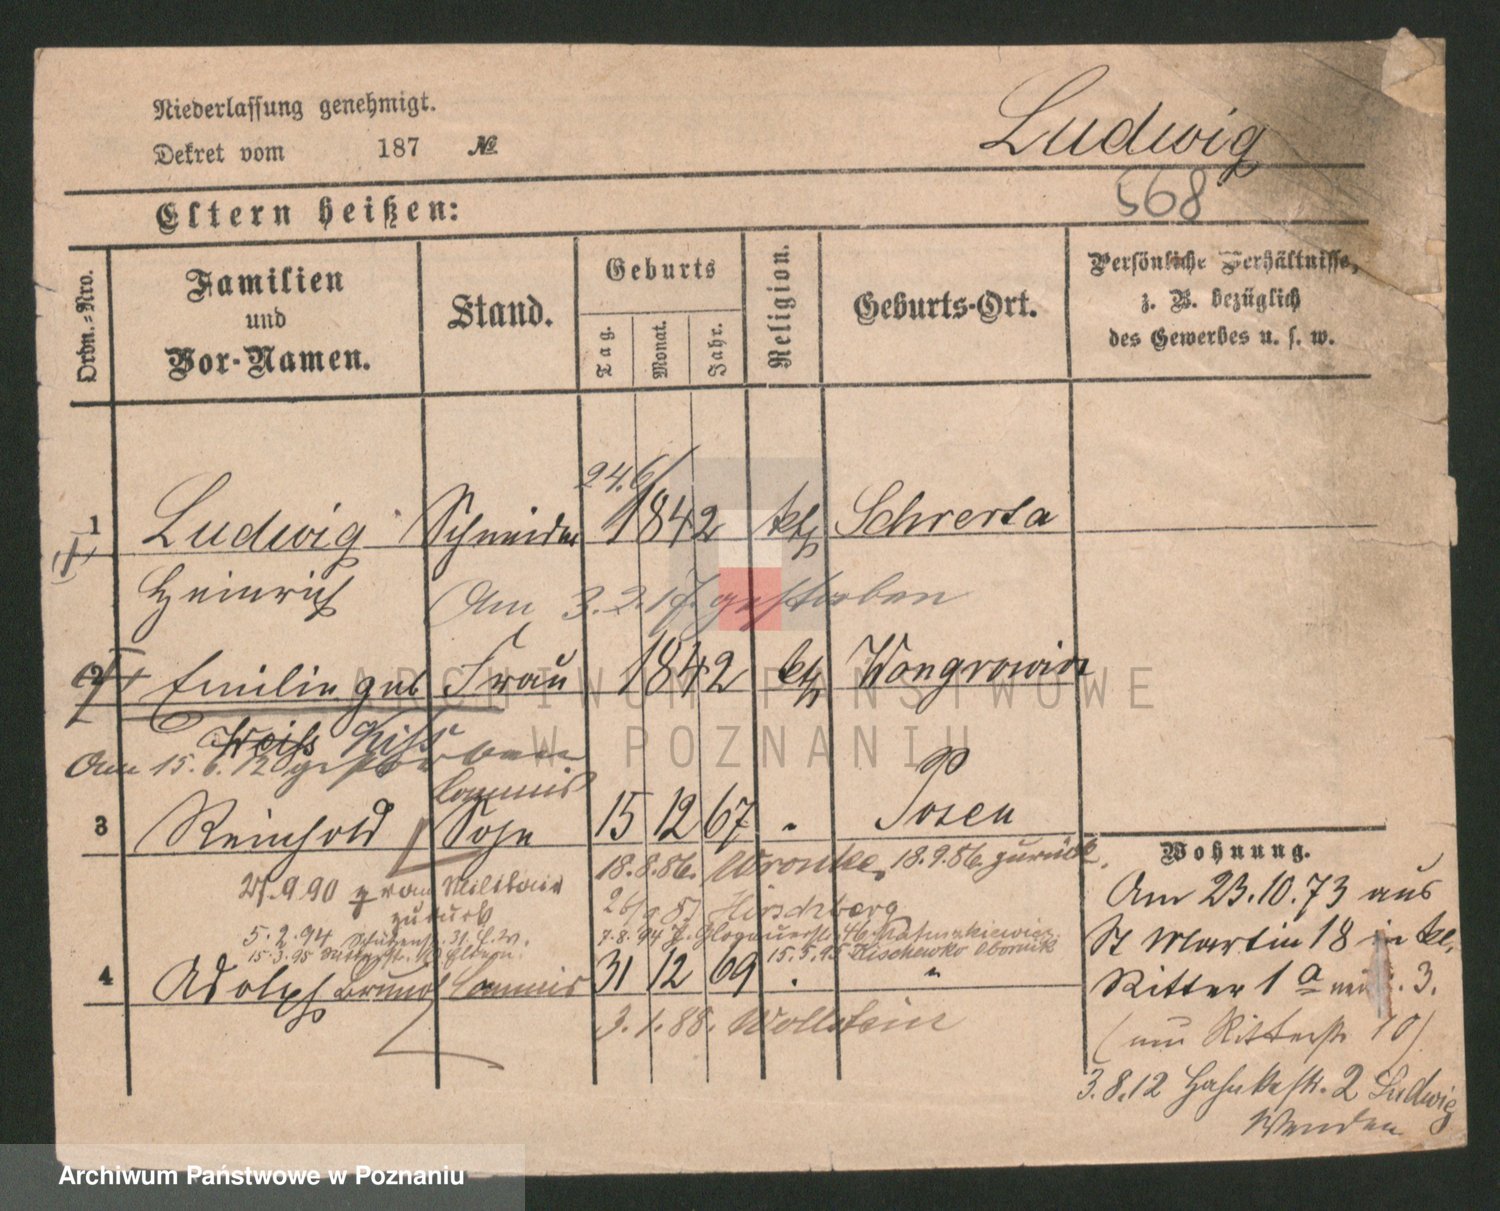 Niederlassung genehmigt.
Dekret vom 187 №
Ludwig
568
Eltern heißen:
Ordn.-Nro.
Familien
und
Vor-Namen.
Stand.
Geburts
Tag.
Monat.
Jahr.
Religion.
Geburts-Ort.
Persönliche Verhältnisse,
z. B. bezüglich
des Gewerbes u. s. w.
24.6/
1 Ludwig Schneider 1842 kth Schwersa
Heinrich
Am 3.2.17. gestorben
2 Emilie geb Frau 1842 kth Wongrowitz
Weiss
Am 15.6.120 gestorben
Commis
3 Reinhold Sohn 15 12 67 " Posen
18.8.86. Wronke, 18.9.86 zurück.
25.9.90 von Militair
zurück
26/9 87 Hirschberg
5.2.94 Schützenstr. 31
7.8.94 Z. Glogauerstr. 46
15.3.95 Eltern.
15.5.95 Obornik
4 Adolph Bruno Commis 31 12 69 . "
3.1.88. Wollstein
Wohnung.
Am 23.10.73 aus
St Martin 18 in kl.
Ritter 1 a neu . 3.
(nun Ritterstr 10)
3.8.12 Hohn str. 2 Ludwig
Wenden
ARCHIWUM PAŃSTWOWE
W POZNANIU
Archiwum Państwowe w Poznaniu